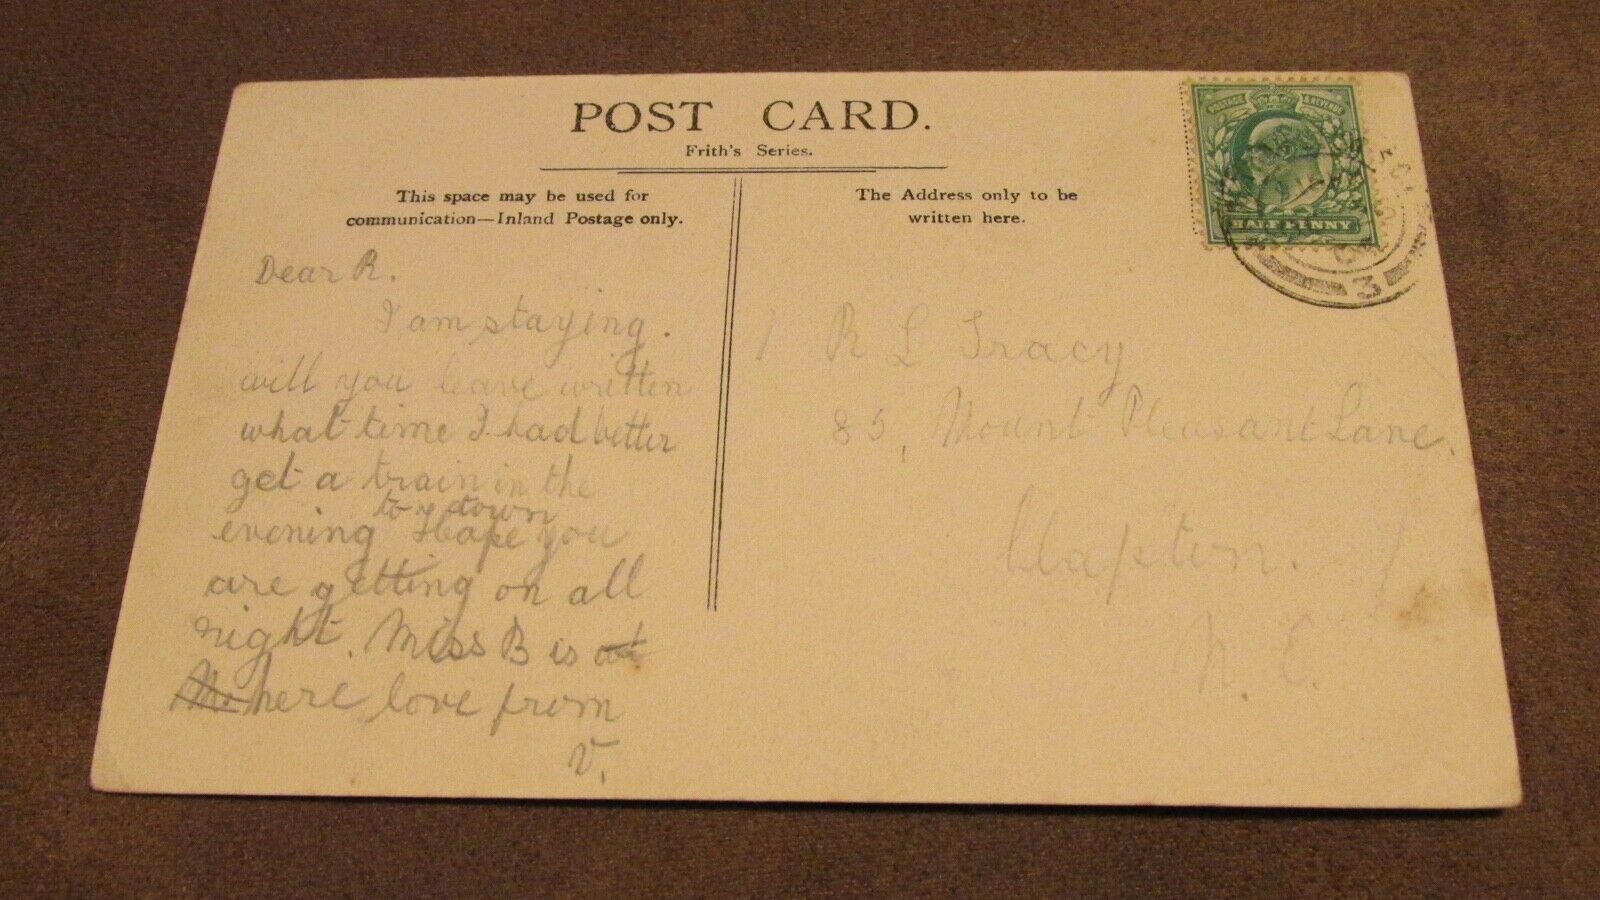 POST CARD.
Frith's Series.
This space may be used for
communication—Inland Postage only.
The Address only to be
written here.
POSTAGE & REVENUE
HALF PENNY
3
Dear R.
I am staying.
will you leave written
what time I had better
get a train in the
to town
evening Hope you
are getting on all
right. Miss B is at
here love from
V.
R L Tracy
85, Mount Pleasant Lane.
Clapton.
N. E.